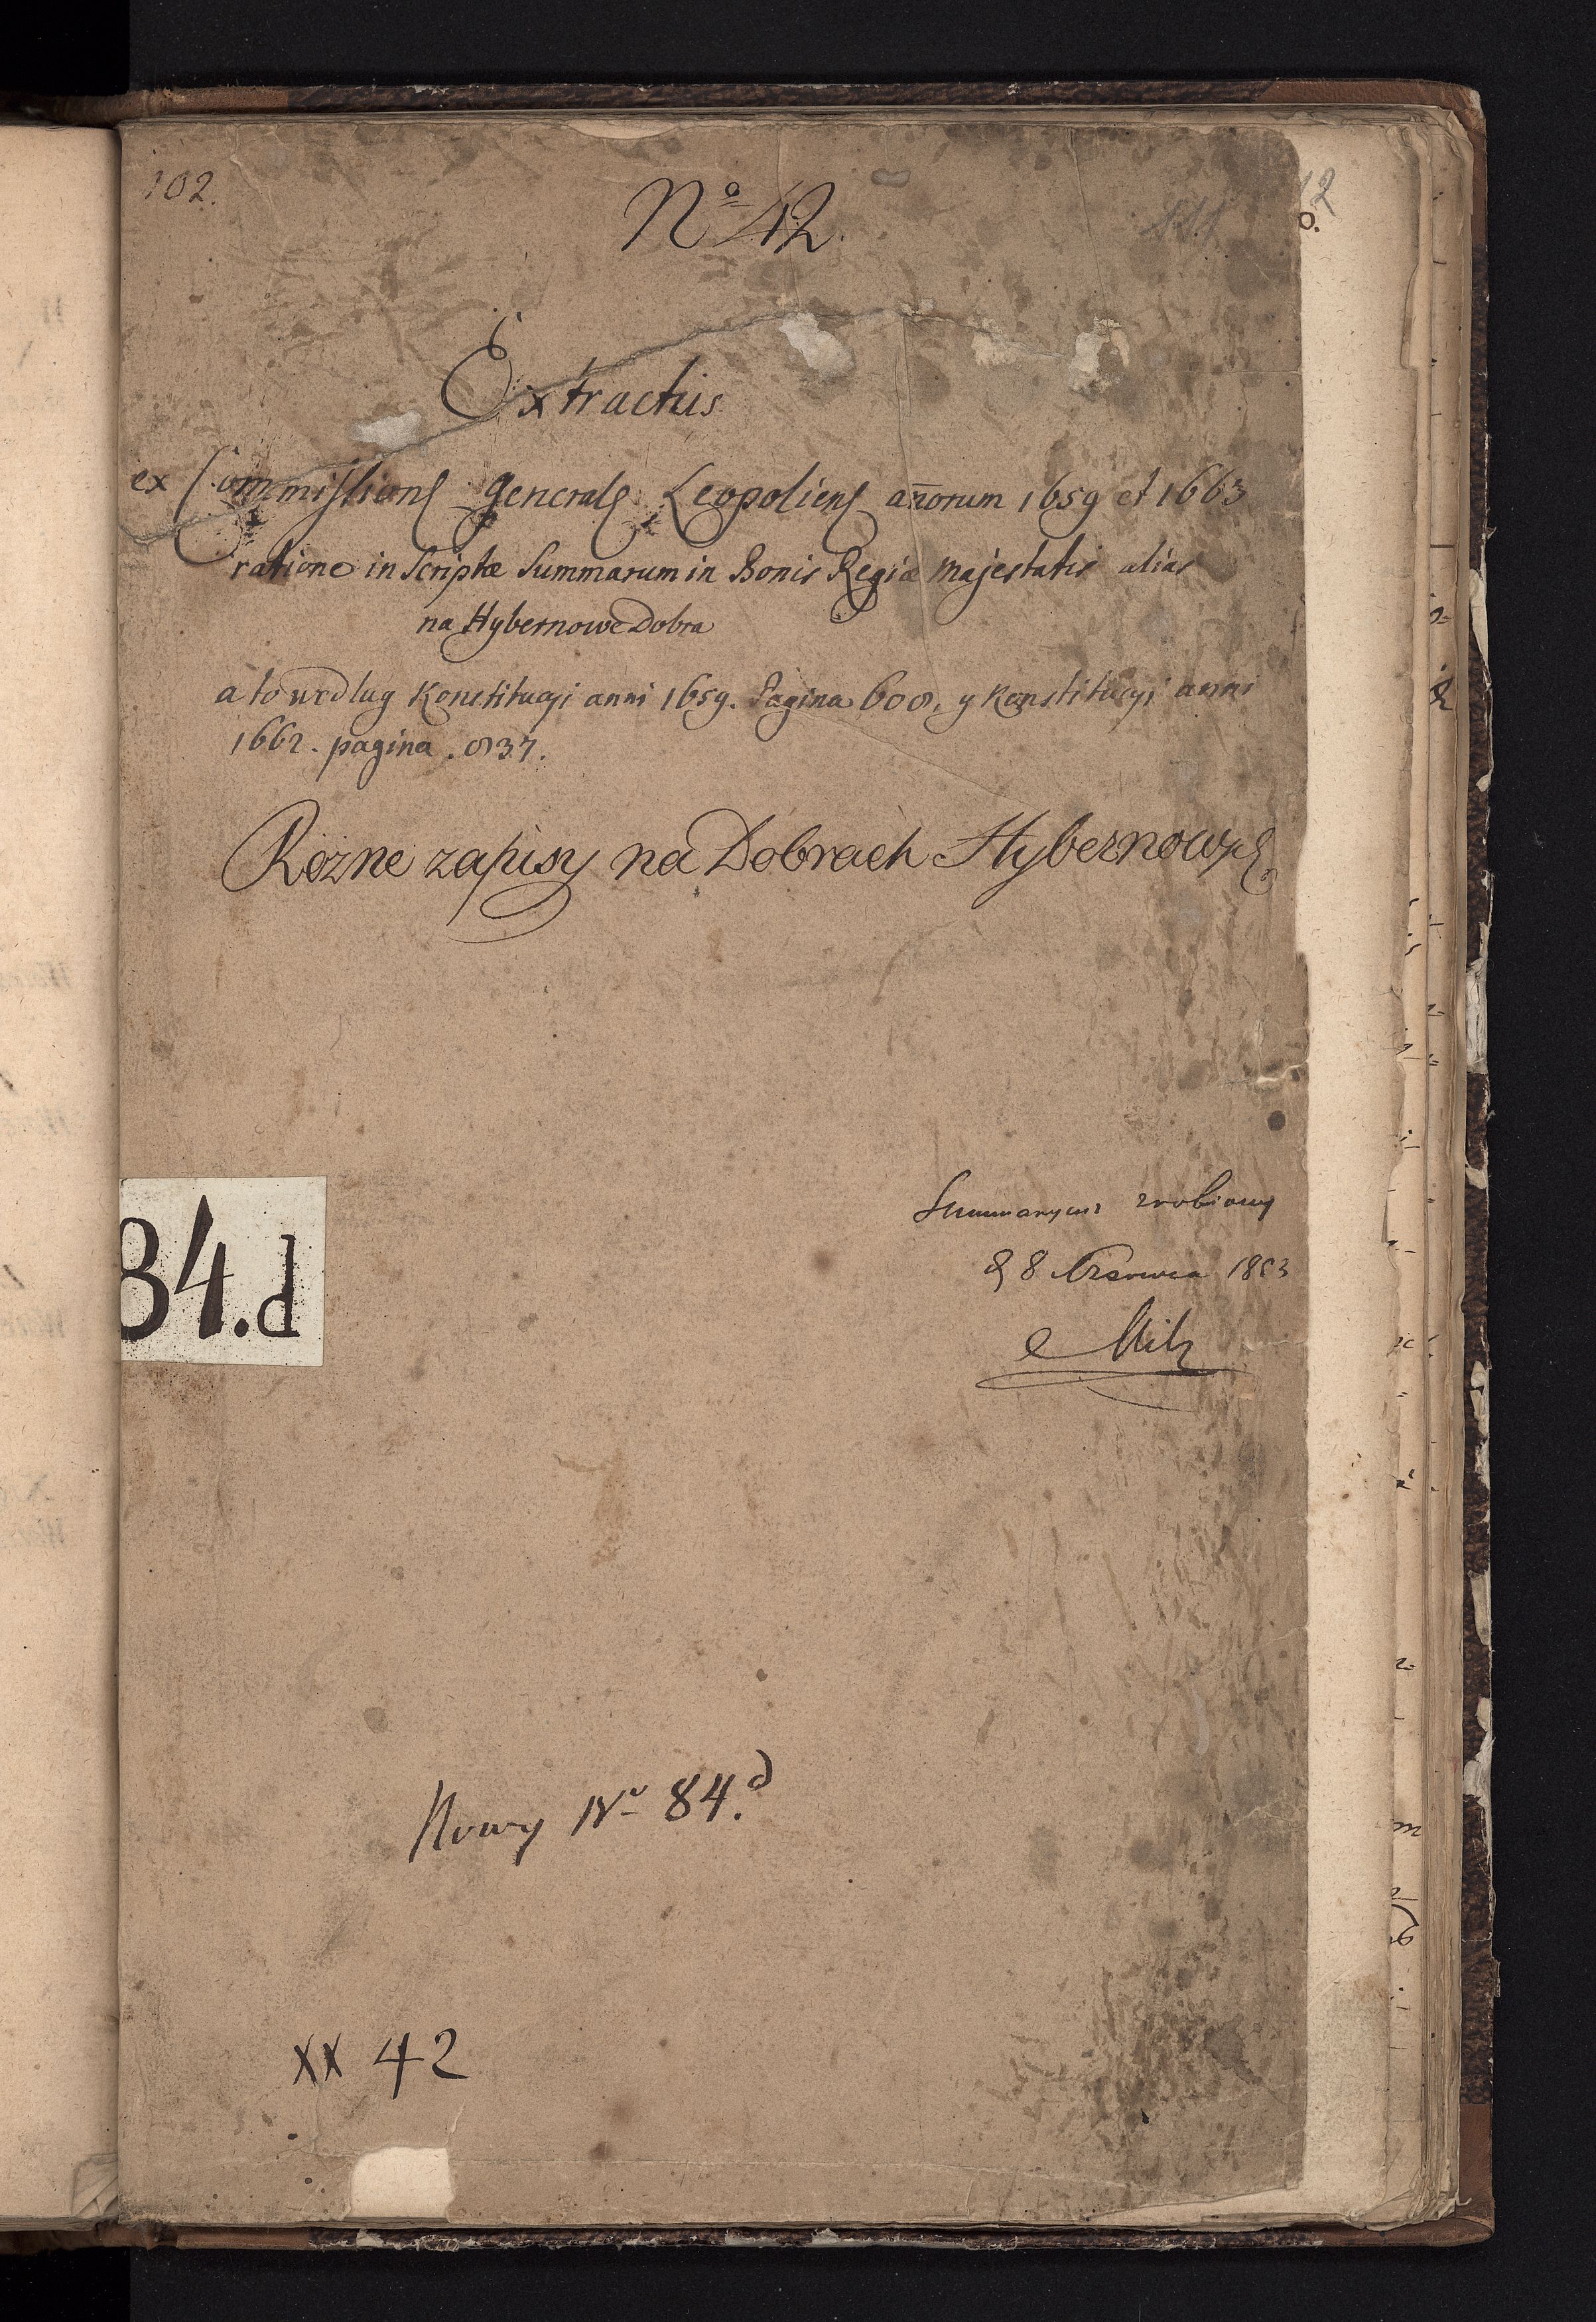 102.
Nº 42.
Extractus
ex Commissionę generalę Leopolienę añorum 1659 et 1663
ratione in scriptæ Summarum in Bonis Regiæ Majestatis alias
na Hybernowe Dobra
a to według Konstitucyi anni 1659. Pagina 608. y Konstitucyi anni
1662. pagina. 837.
Rozne zapisy na Dobrach Hybernowych.
84.d
Summaryusz zrobiony
d 8 Czerwca 1853
Nowy Nº 84.d
xx 42